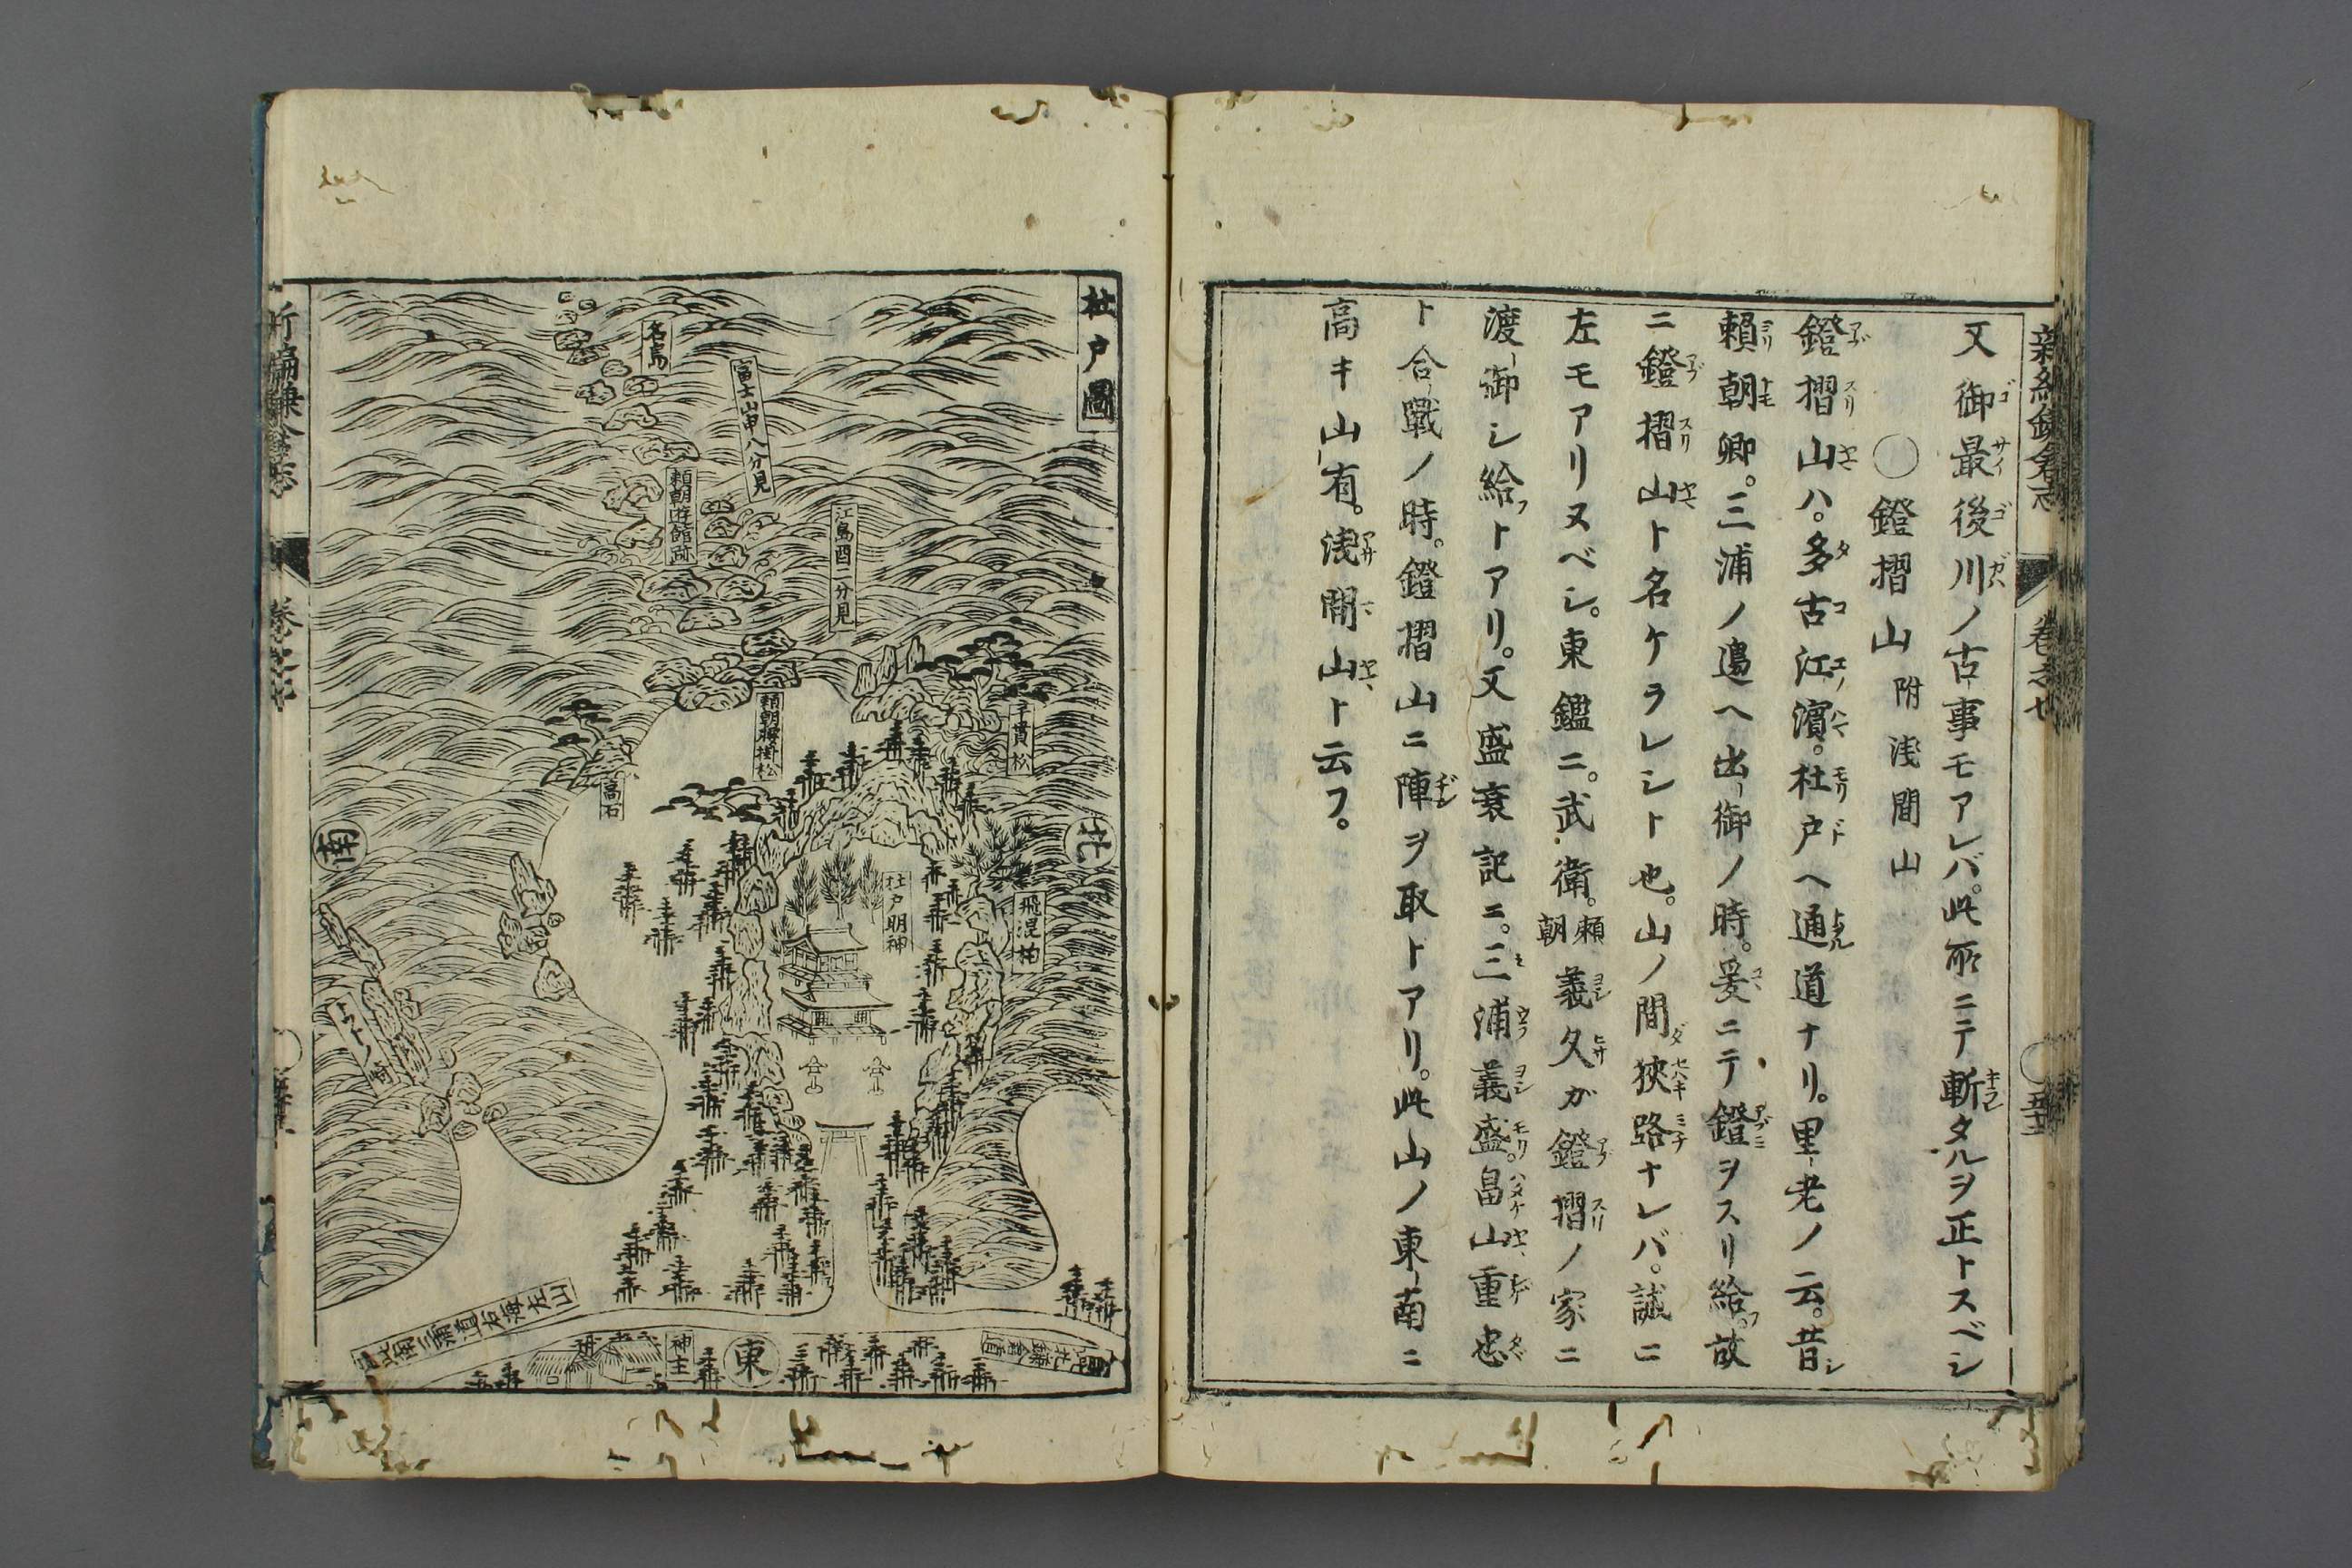 新編鎌倉志
卷之七
又御最後川ノ古事モアレバ。此所ニテ斬タルヲ正トスベシ
〇鐙摺山 附淺間山
鐙摺山ハ。多古江濱。杜戸ヘ通道ナリ。里老ノ云。昔シ
賴朝卿。三浦ノ邉ヘ出御ノ時。爰ニテ鐙ヲスリ給フ。故
ニ鐙摺山ト名ケラレシト也。山ノ間狹路ナレバ。誠ニ
左モアリヌベシ。東鑑ニ。武衛。賴朝義久が鐙摺ノ家ニ
渡御シ給フトアリ。又盛衰記ニ。三浦義盛。畠山重忠
ト合戰ノ時。鐙摺山ニ陣ヲ取トアリ。此山ノ東南ニ
高キ山有。淺間山ト云フ。
杜戸圖
名島
富士山申八分見
賴朝遊館跡
江島酉二分見
千貫松
賴朝腰掛松
高石
北
南
杜戸明神
飛混柏
トツトノ崎
此南三浦道右海左山
神主
東
新編鎌倉志
卷之七